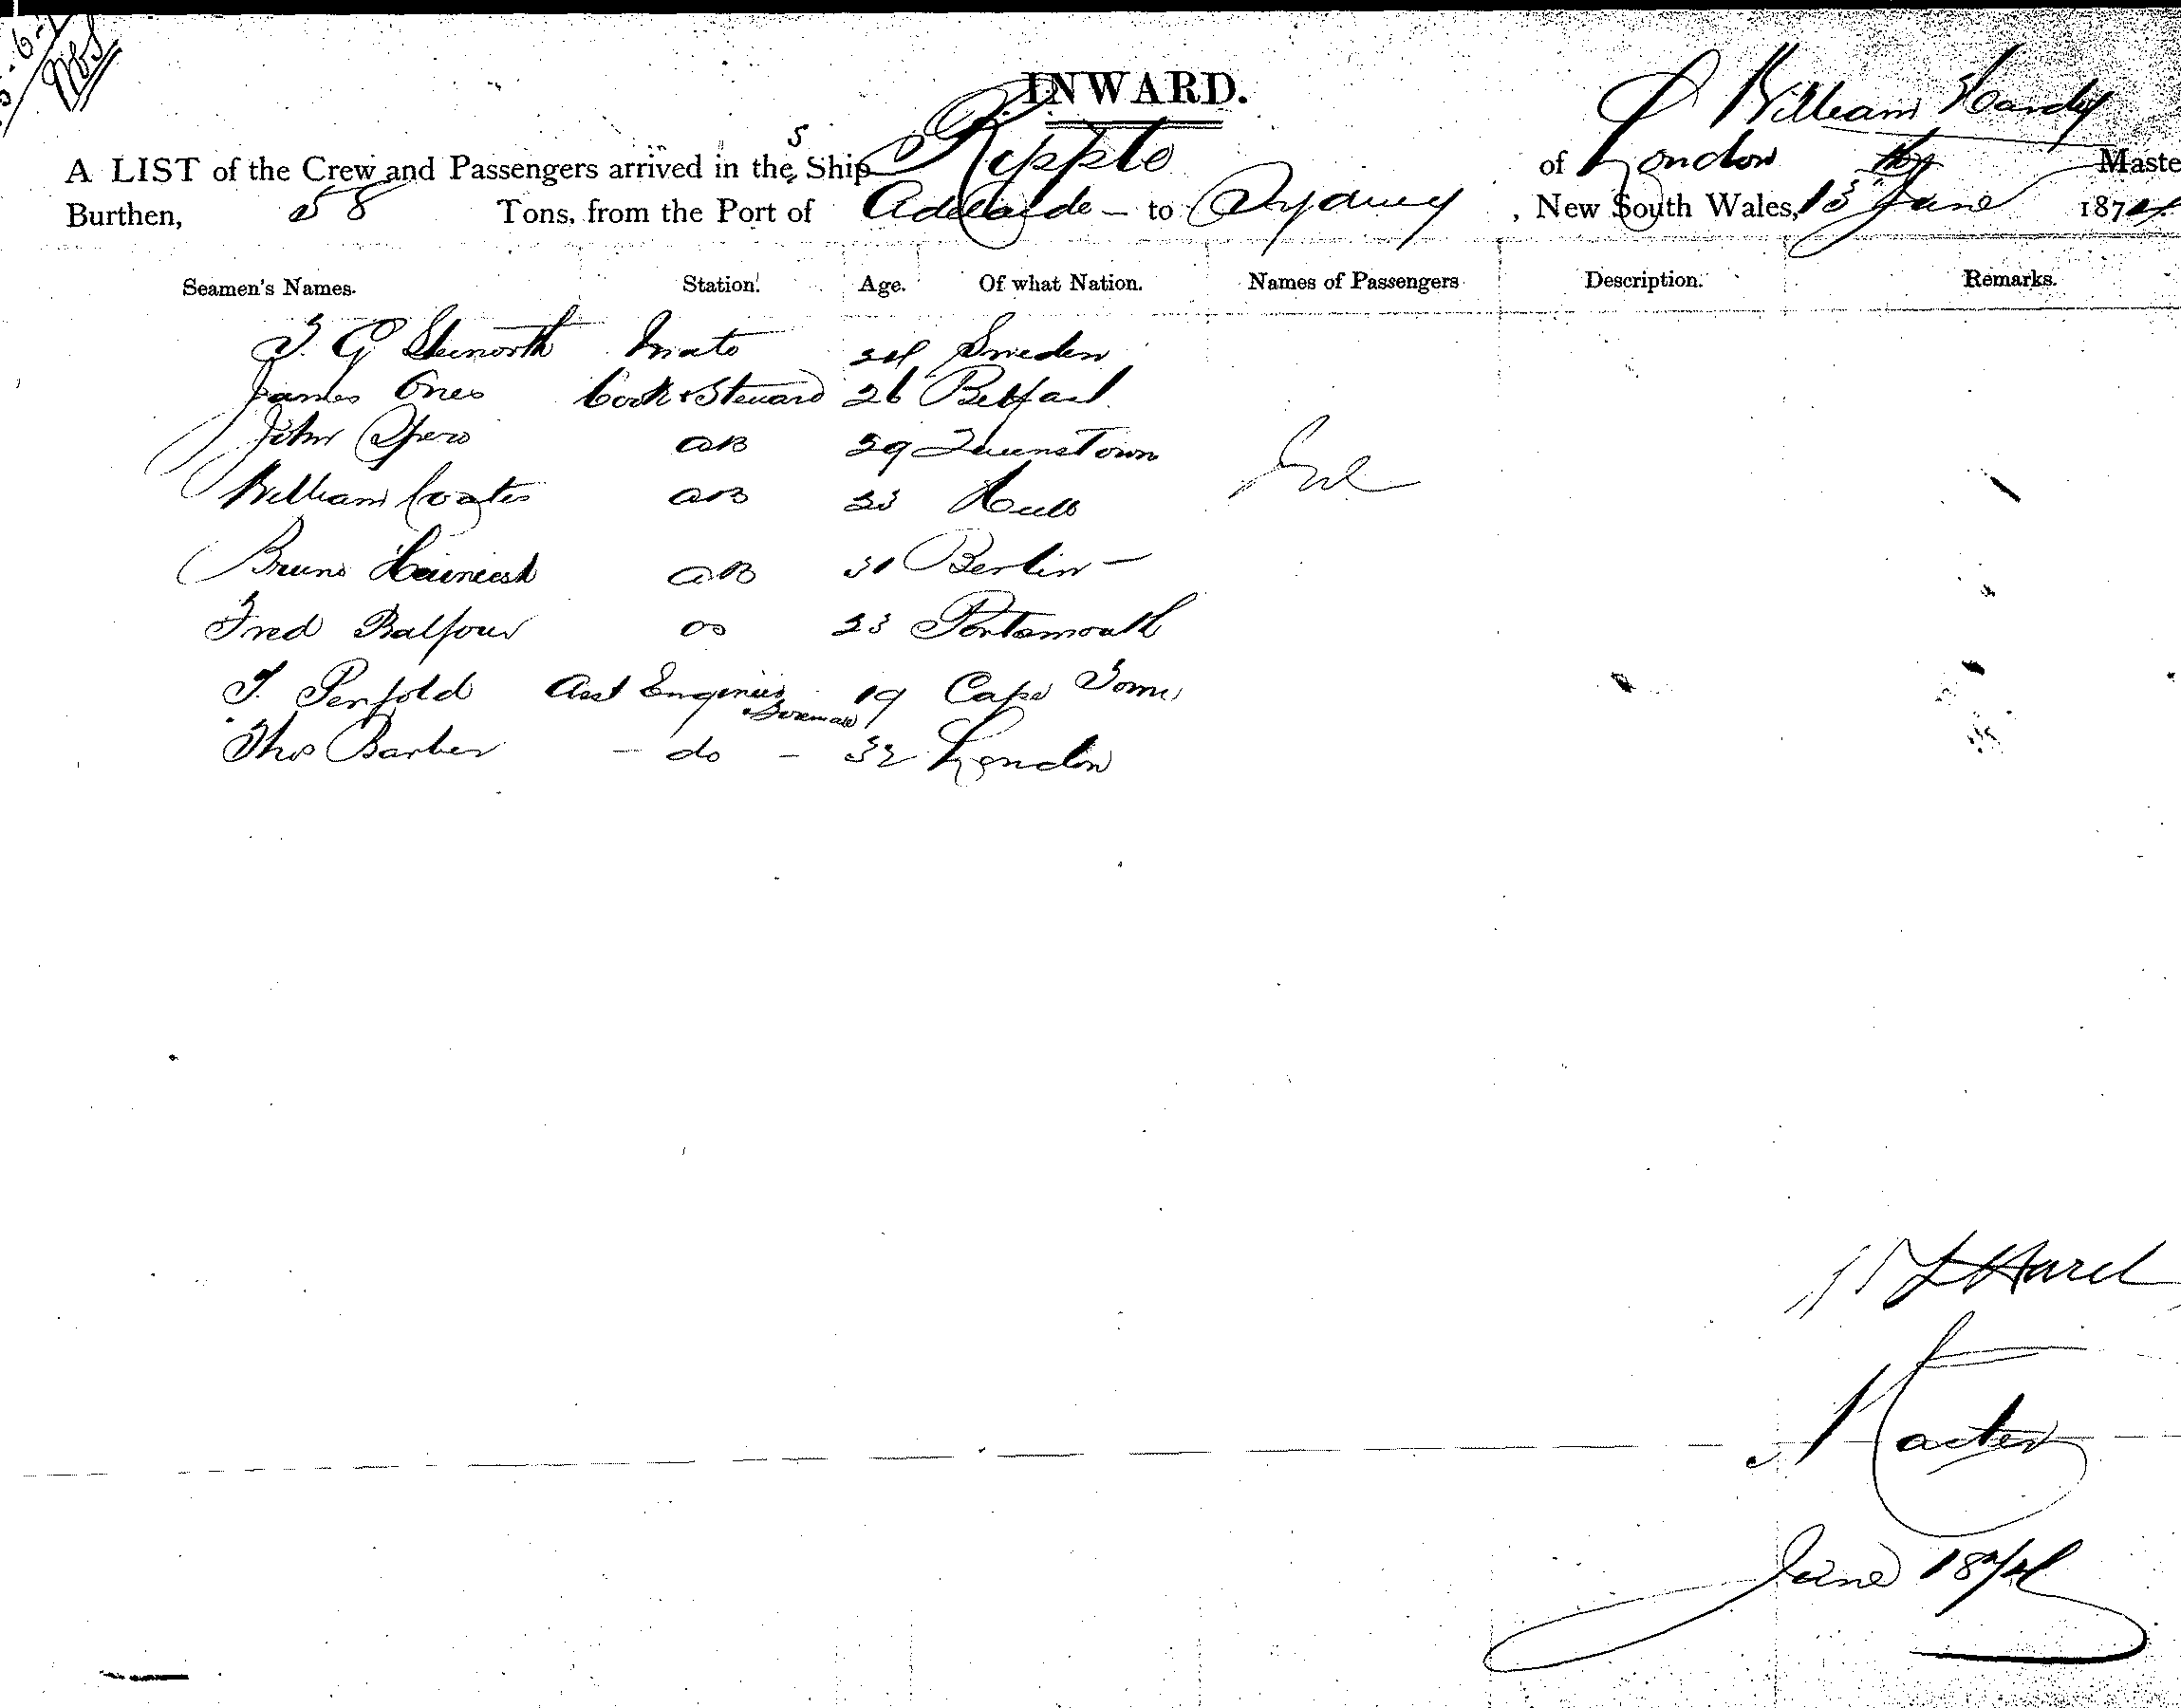 INWARD.
William Hardy
A LIST of the Crew and Passengers arrived in the S Ship Ripple of London Maste
Burthen, 58 Tons, from the Port of Adelaide - to Sydney, New South Wales, 13 June 1874
Seamen's Names. Station. Age. Of what Nation. Names of Passengers Description. Remarks.
T. G. Mate 24 Sweden
James Ones Cook & Steward 26 Belfast
John Spero AB 29 Queenstown
William Coates AB 23 Hull
Nil
Bruno AB 31 Berlin -
Fred Balfour OS 23 Portsmouth
T. Penfold Asst Engineer 19 Cape Town
Fireman
Thos Barber - do - 32 London
Master
June 1874